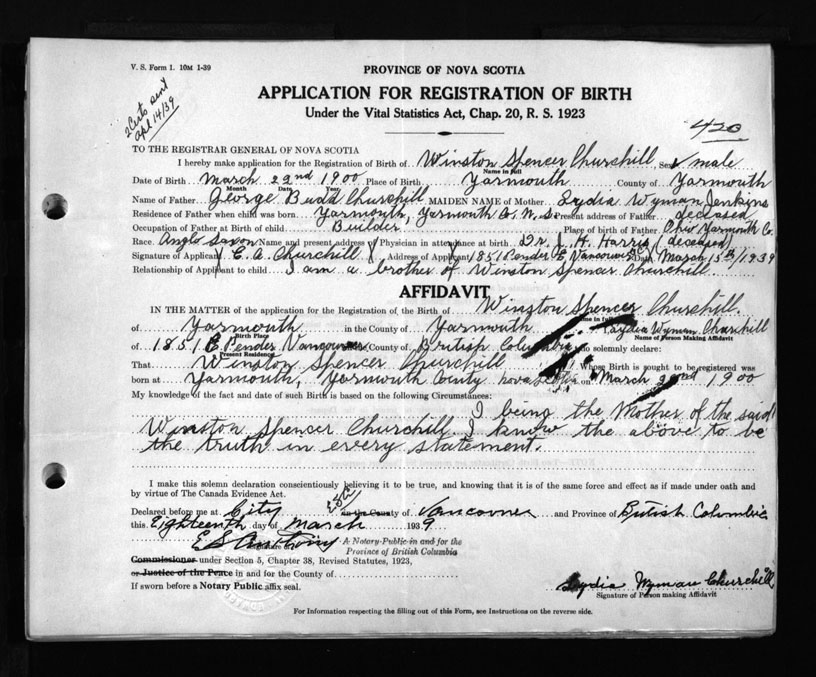 V. S. Form 1. 10M 1-39
2 Certs sent
apl 14/39
PROVINCE OF NOVA SCOTIA
APPLICATION FOR REGISTRATION OF BIRTH
Under the Vital Statistics Act, Chap. 20, R. S. 1923
420
TO THE REGISTRAR GENERAL OF NOVA SCOTIA
I hereby make application for the Registration of Birth of Winston Spencer Churchill Sex male
Name in full
Date of Birth March 22nd 1900 Place of Birth Yarmouth County of Yarmouth
Month Date Year
Name of Father George Budd Churchill MAIDEN NAME of Mother Lydia Wyman Jenkins
Residence of Father when child was born Yarmouth, Yarmouth Co. N.S. Present address of Father deceased
Occupation of Father at Birth of child Builder Place of birth of Father Ohio Yarmouth Co.
Race. Anglo Saxon Name and present address of Physician in attendance at birth Dr. J. H. Harris (deceased)
Signature of Applicant E. A. Churchill Address of Applicant 1851 Pender E, Vancouver B.C. Date March 15th/1939
Relationship of Applicant to child I am a brother of Winston Spencer Churchill
AFFIDAVIT
IN THE MATTER of the application for the Registration of the Birth of Winston Spencer Churchill.
Name in full
of Yarmouth in the County of Yarmouth I Laydia Wyman Churchill
Birth Place Name of Person Making Affidavit
of 1851 E Pender Vancouver British Columbia do solemnly declare:
Present Residence
That Winston Spencer Churchill Whose Birth is sought to be registered was
born at Yarmouth, Yarmouth County nova scotia on March 22nd 1900
My knowledge of the fact and date of such Birth is based on the following Circumstances:
I being the Mother of the said
Winston Spencer Churchill. I know the above to be
the truth in every statement.
I make this solemn declaration conscientiously believing it to be true, and knowing that is of the same force and effect as if made under oath and
by virtue of The Canada Evidence Act.
Declared before me at City in the County of Vancouver and Province of British Columbia
this Eighteenth day of March 1939
A Notary Public in and for the
Province of British Columbia
Commissioner under Section 5, Chapter 38, Revised Statutes, 1923,
or Justice of the Peace in and for the County of
If sworn before a Notary Public affix seal.
Lydia Wyman Churchill
Signature of Person making Affidavit
For Information respecting the filling out of this Form, see Instructions on the reverse side.